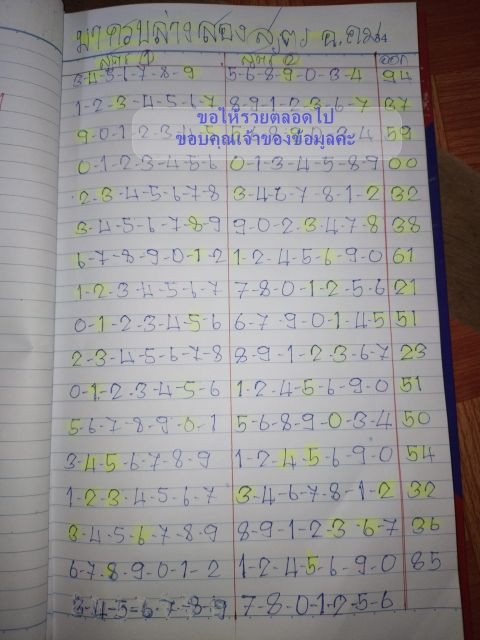 มาครบล่างสองสูตร อ.คม84
สูตร 1 สูตร 2 ออก
3-4-5-6-7-8-9 5-6-8-9-0-3-4 94
1-2-3-4-5-6-7 8-9-1-2-3-6-7 37
ขอให้รวยตลอดไป
9-0-1-2-3-4-5 5-6-8-9-0-3-4 59
ขอบคุณเจ้าของข้อมูลค่ะ
0-1-2-3-4-5-6 0-1-3-4-5-8-9 00
2-3-4-5-6-7-8 3-4-6-7-8-1-2 32
3-4-5-6-7-8-9 9-0-2-3-4-7-8 38
6-7-8-9-0-1-2 1-2-4-5-6-9-0 61
1-2-3-4-5-6-7 7-8-0-1-2-5-6 21
0-1-2-3-4-5-6 6-7-9-0-1-4-5 51
2-3-4-5-6-7-8 8-9-1-2-3-6-7 23
0-1-2-3-4-5-6 1-2-4-5-6-9-0 51
5-6-7-8-9-0-1 5-6-8-9-0-3-4 50
3-4-5-6-7-8-9 1-2-4-5-6-9-0 54
1-2-3-4-5-6-7 3-4-6-7-8-1-2 32
3-4-5-6-7-8-9 8-9-1-2-3-6-7 36
6-7-8-9-0-1-2 1-2-4-5-6-9-0 85
3-4-5-6-7-8-9 7-8-0-1-2-5-6